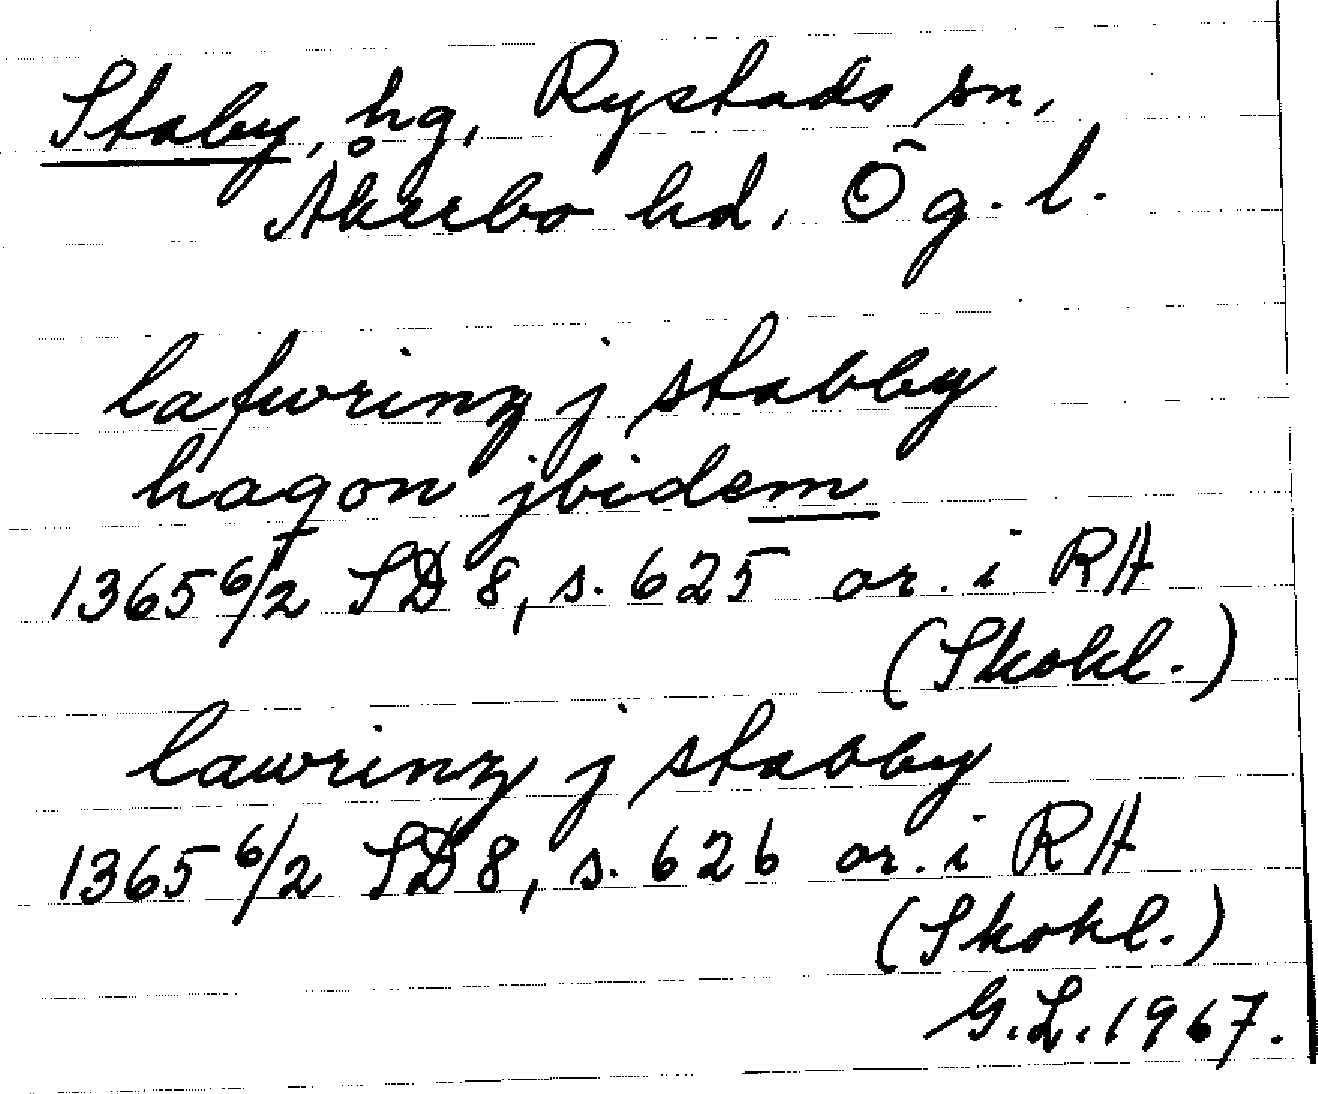 Staby, hg, Rystads sn,
Åkerbo hd, Ög. l.
lafwrinz j stabby
haqon jbidem
1365 6/2 SD 8, s. 625 or. i RA
(Skokl.)
lawrinz j stabby
1365 6/2 SD 8, s. 626 or. i RA
(Skokl.)
G.L. 1967.